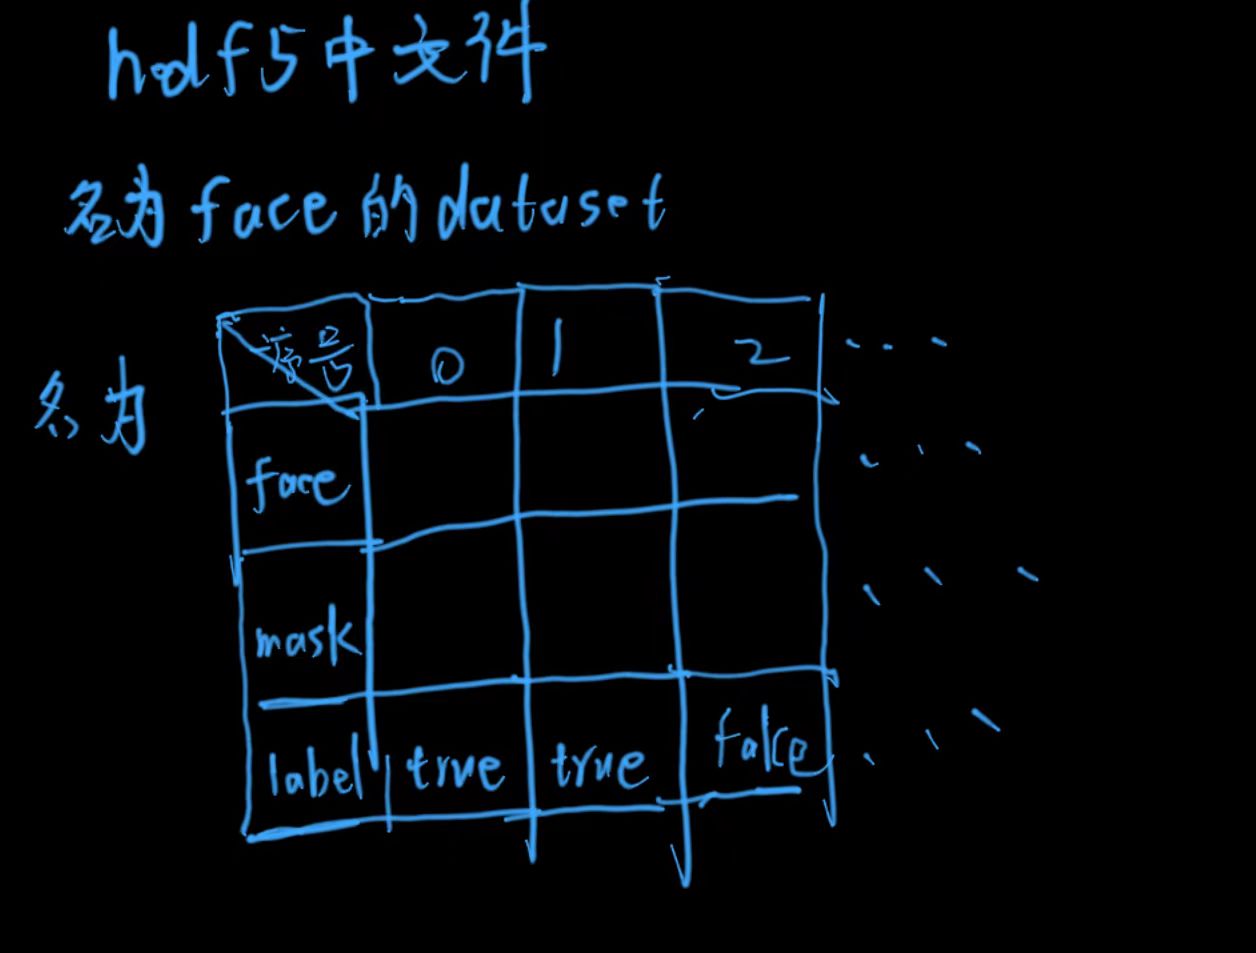 hdf5中文件
名为face的dataset
序号 0 1 2 ...
名为
face ...
mask ...
label true true false ...